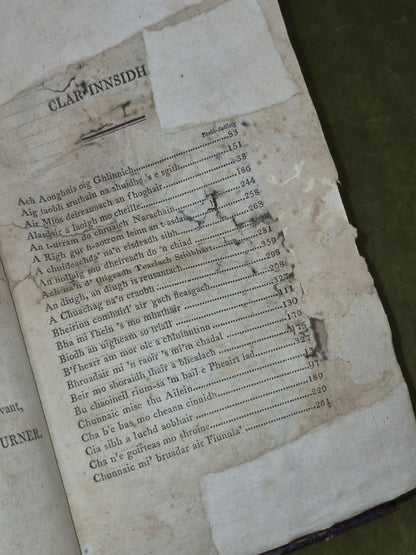 CLAR INNSIDH
Taobh-duilleig
Ach Aonghuis oig Ghlinnich, 83
Aig taobh sruthain na shuidhg 's e sgith, 151
Air Mios deireannach an fhoghair 38
Alasdair a laoigh mo cheille 186
An t-urram do chruaich Narachain 244
A Righ gur h-aotrom leim an t-asdar 258
A chuideachda na'n eisdeadh sibh 268
An nollaig dheireadh do'n chiad
Ach ma'n d' thigeadh Tearlach Stiubhart 281
An diugh, an diugh is reusantach 359
A Chuachag na'n craobh 298
Bheirinn comhairl' air gach fleasgach
Bha mi fhein 's mo mhuthair
Biodh an uigheam so triall 117
B'fhearr am mor ole a chluintinn 130
Bhruadair mi 'n raoir 's mi'm chadal 170
Beir mo shoraidh thair a bhealach 175
Bu chaoineil rium-sa 'm bail-e Pheairt iad 327
Chunnaic misc thu Ailein
Cha b'e bas mo cheann cinnidh 97
Cia sibh a luchd aobhair 189
Cha n'e goirteas mo shroine 229
Chunnaic mi' bruadar air Fiunala' 261
vant,
URNER,